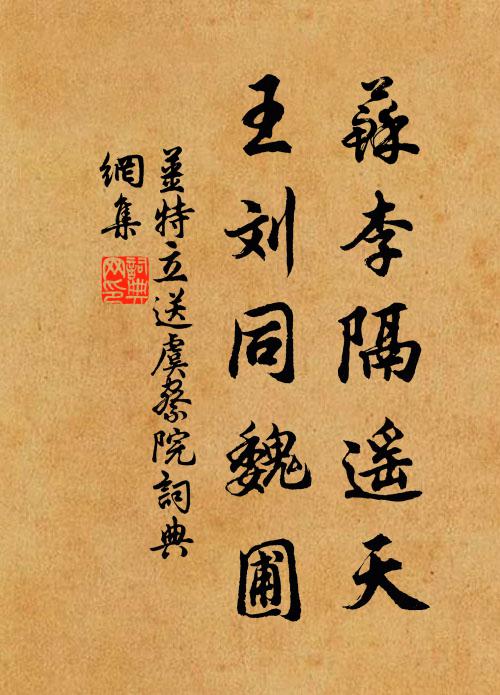 蘇李隔遥天
王刘同魏圃
薑特立送虞察院詞典
網集
詞典网印